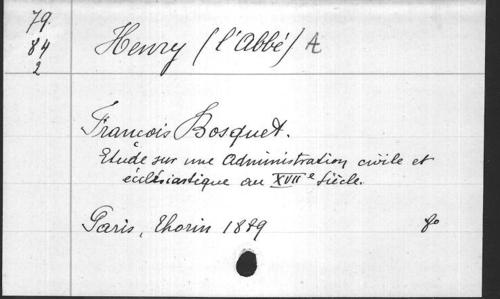 79.
84
2
Henry (l'Abbé) A
Francois Bosquet.
Etude sur une administration civile et
écclésiastique au XVIIe Siècle.
Paris, Thorin 1889 fo